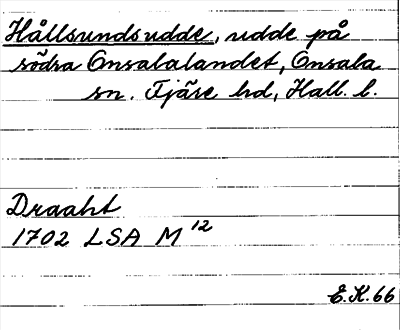 Hållsundsudde, udde på
södra Onsalalandet, Onsala
sn. Fjäre hd, Hall. l.
Draaht
1702 LSA M 12
E.K. 66